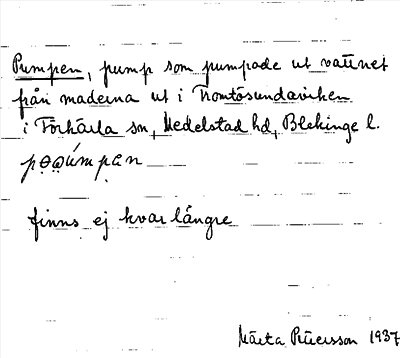 Pumpen, pump som pumpade ut vattnet
från maderna ut i Tromtösundaviken
i Förkärla sn, Medelstad hd, Blekinge l.
finns ej kvar längre
Märta 1937